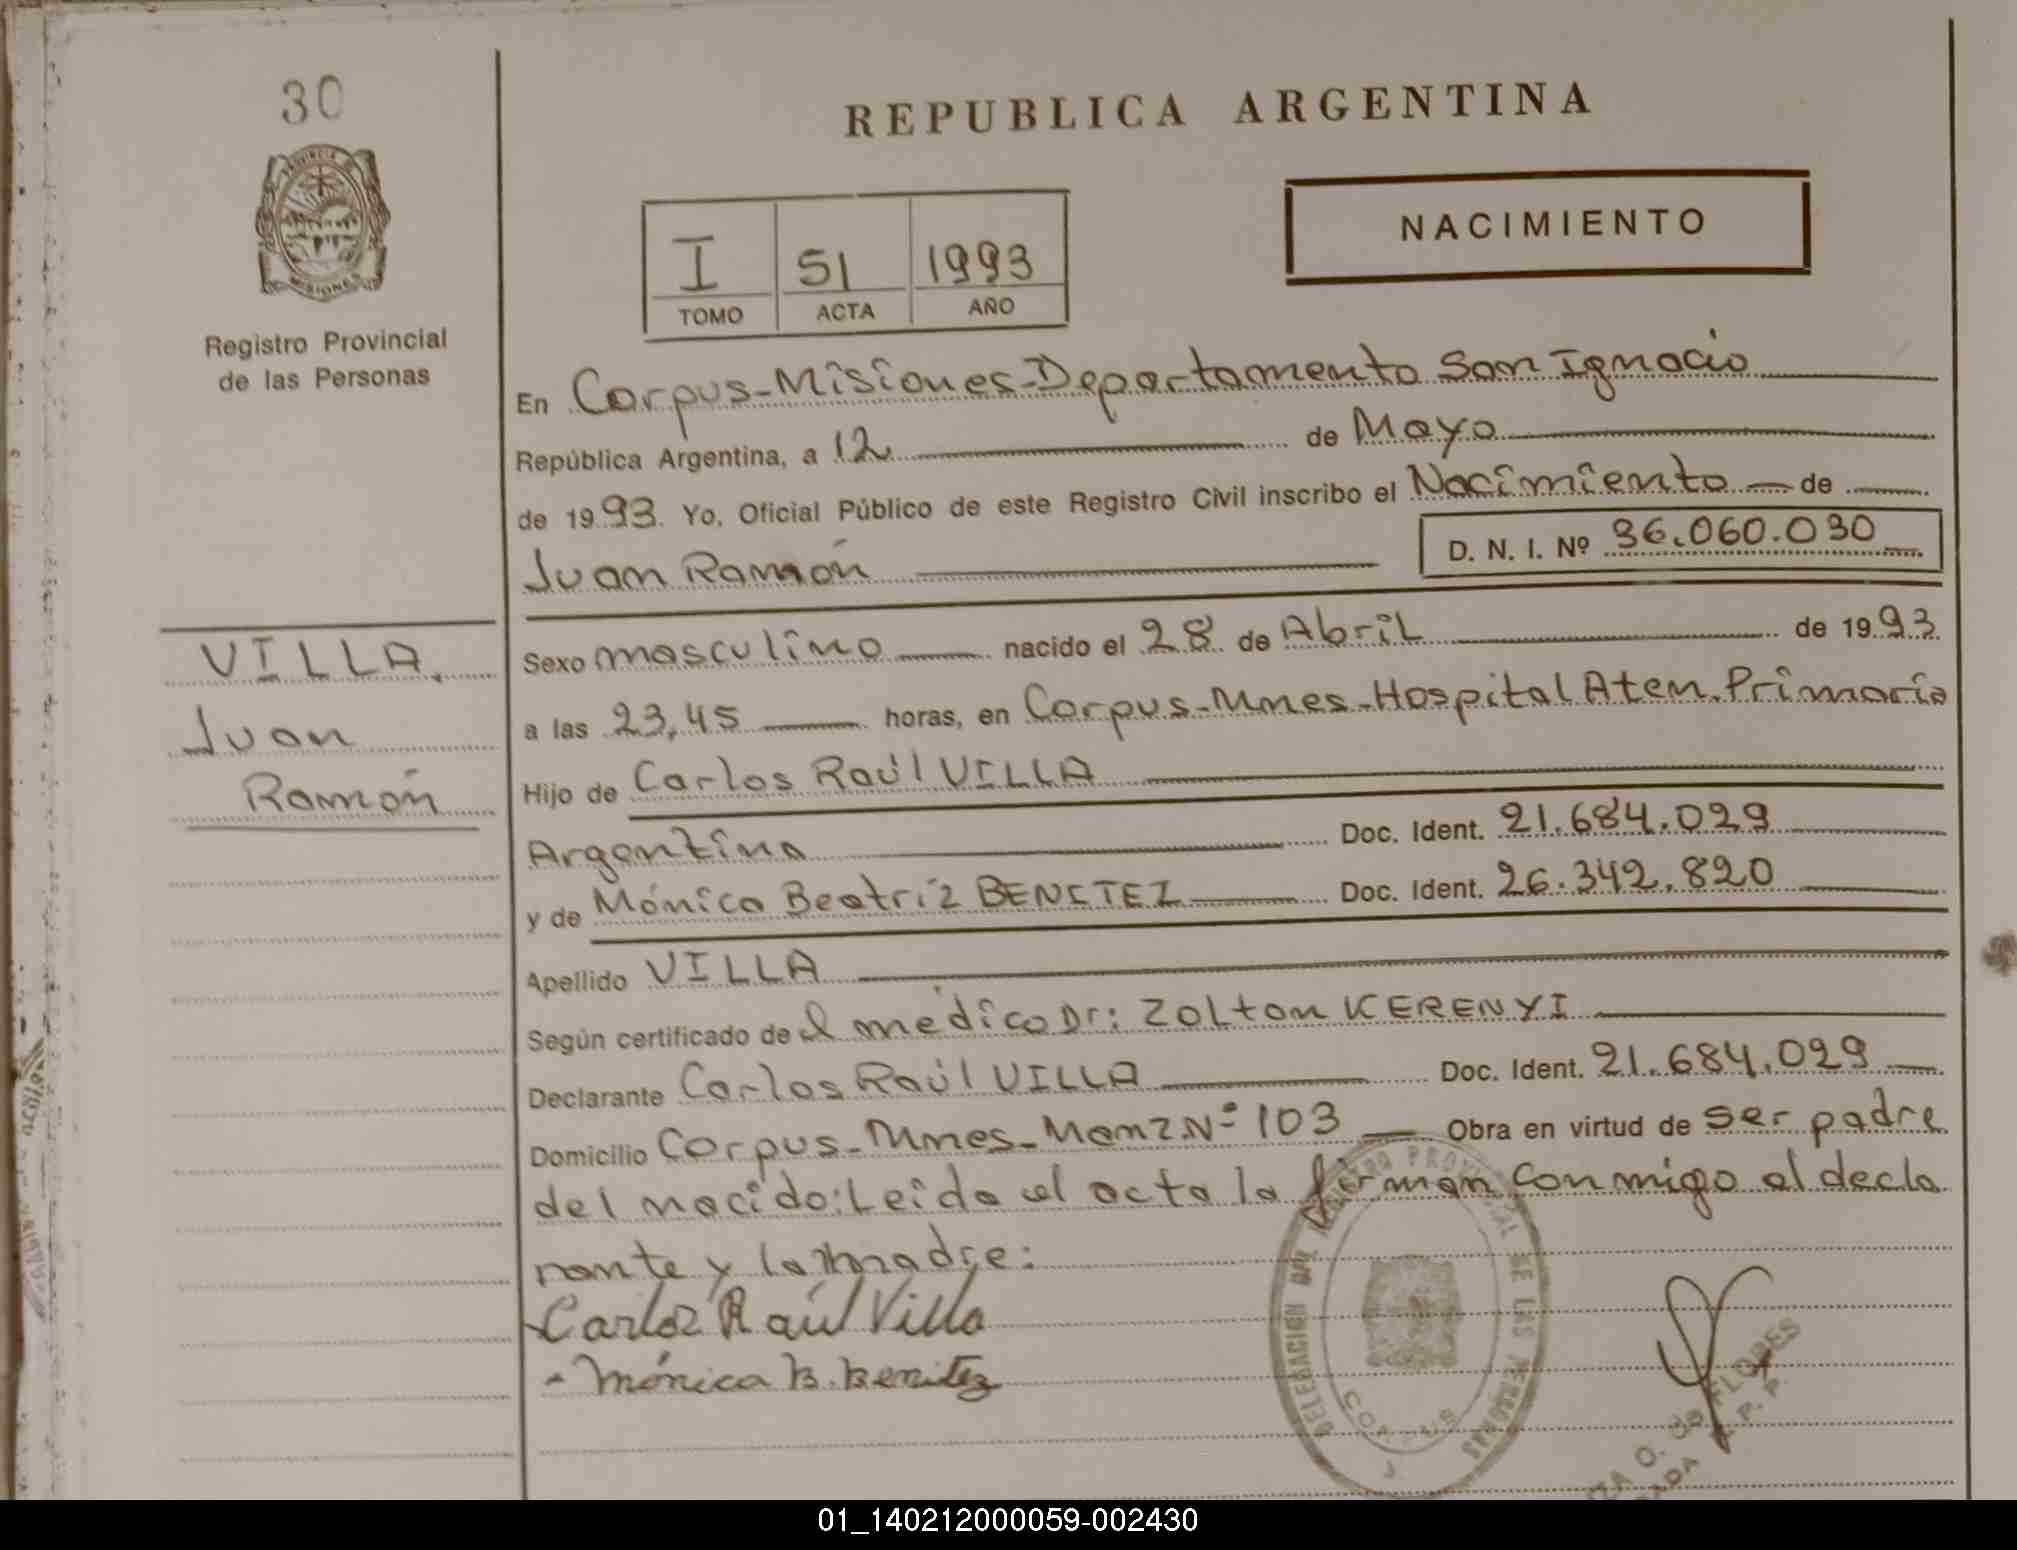 30
PROVINCIA DE
MISIONES
Registro Provincial
de las Personas
VILLA,
Juan
Ramón
REPUBLICA ARGENTINA
NACIMIENTO
I 51 1993
TOMO ACTA AÑO
En Corpus-Misiones-Departamento San Ignacio
República Argentina, a 12 de Mayo
de 1993. Yo, Oficial Público de este Registro Civil inscribo el Nacimiento de
Juan Ramón D. N. I. Nº 36.060.030
Sexo masculino nacido el 28 de Abril de 1993.
a las 23,45 horas, en Corpus-Mnes-Hospital Aten. Primaria
Hijo de Carlos Raúl VILLA
Argentina Doc. Ident. 21.684.029
y de Mónica Beatríz BENITEZ Doc. Ident. 26.342.820
Apellido VILLA
Según certificado de el médico Dr: Zolton KERENYI
Declarante Carlos Raúl VILLA Doc. Ident. 21.684.029
Domicilio Corpus-Mnes-Manz.Nº 103 Obra en virtud de ser padre
del nacido: Leída el acta la firman conmigo el decla
rante y la madre:
Carlos Raúl Villa
- Mónica B. Benitez
DELEGACION DEL REGISTRO PROVINCIAL DE LAS PERSONAS
CORPUS
FLORES
01_140212000059-002430